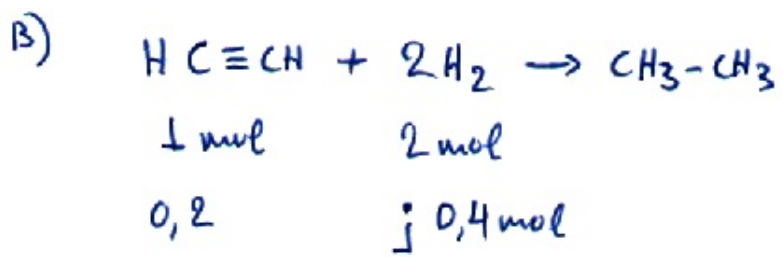 B) HC≡CH + 2H₂ → CH₃-CH₃
1 mol 2 mol
0,2 ; 0,4 mol